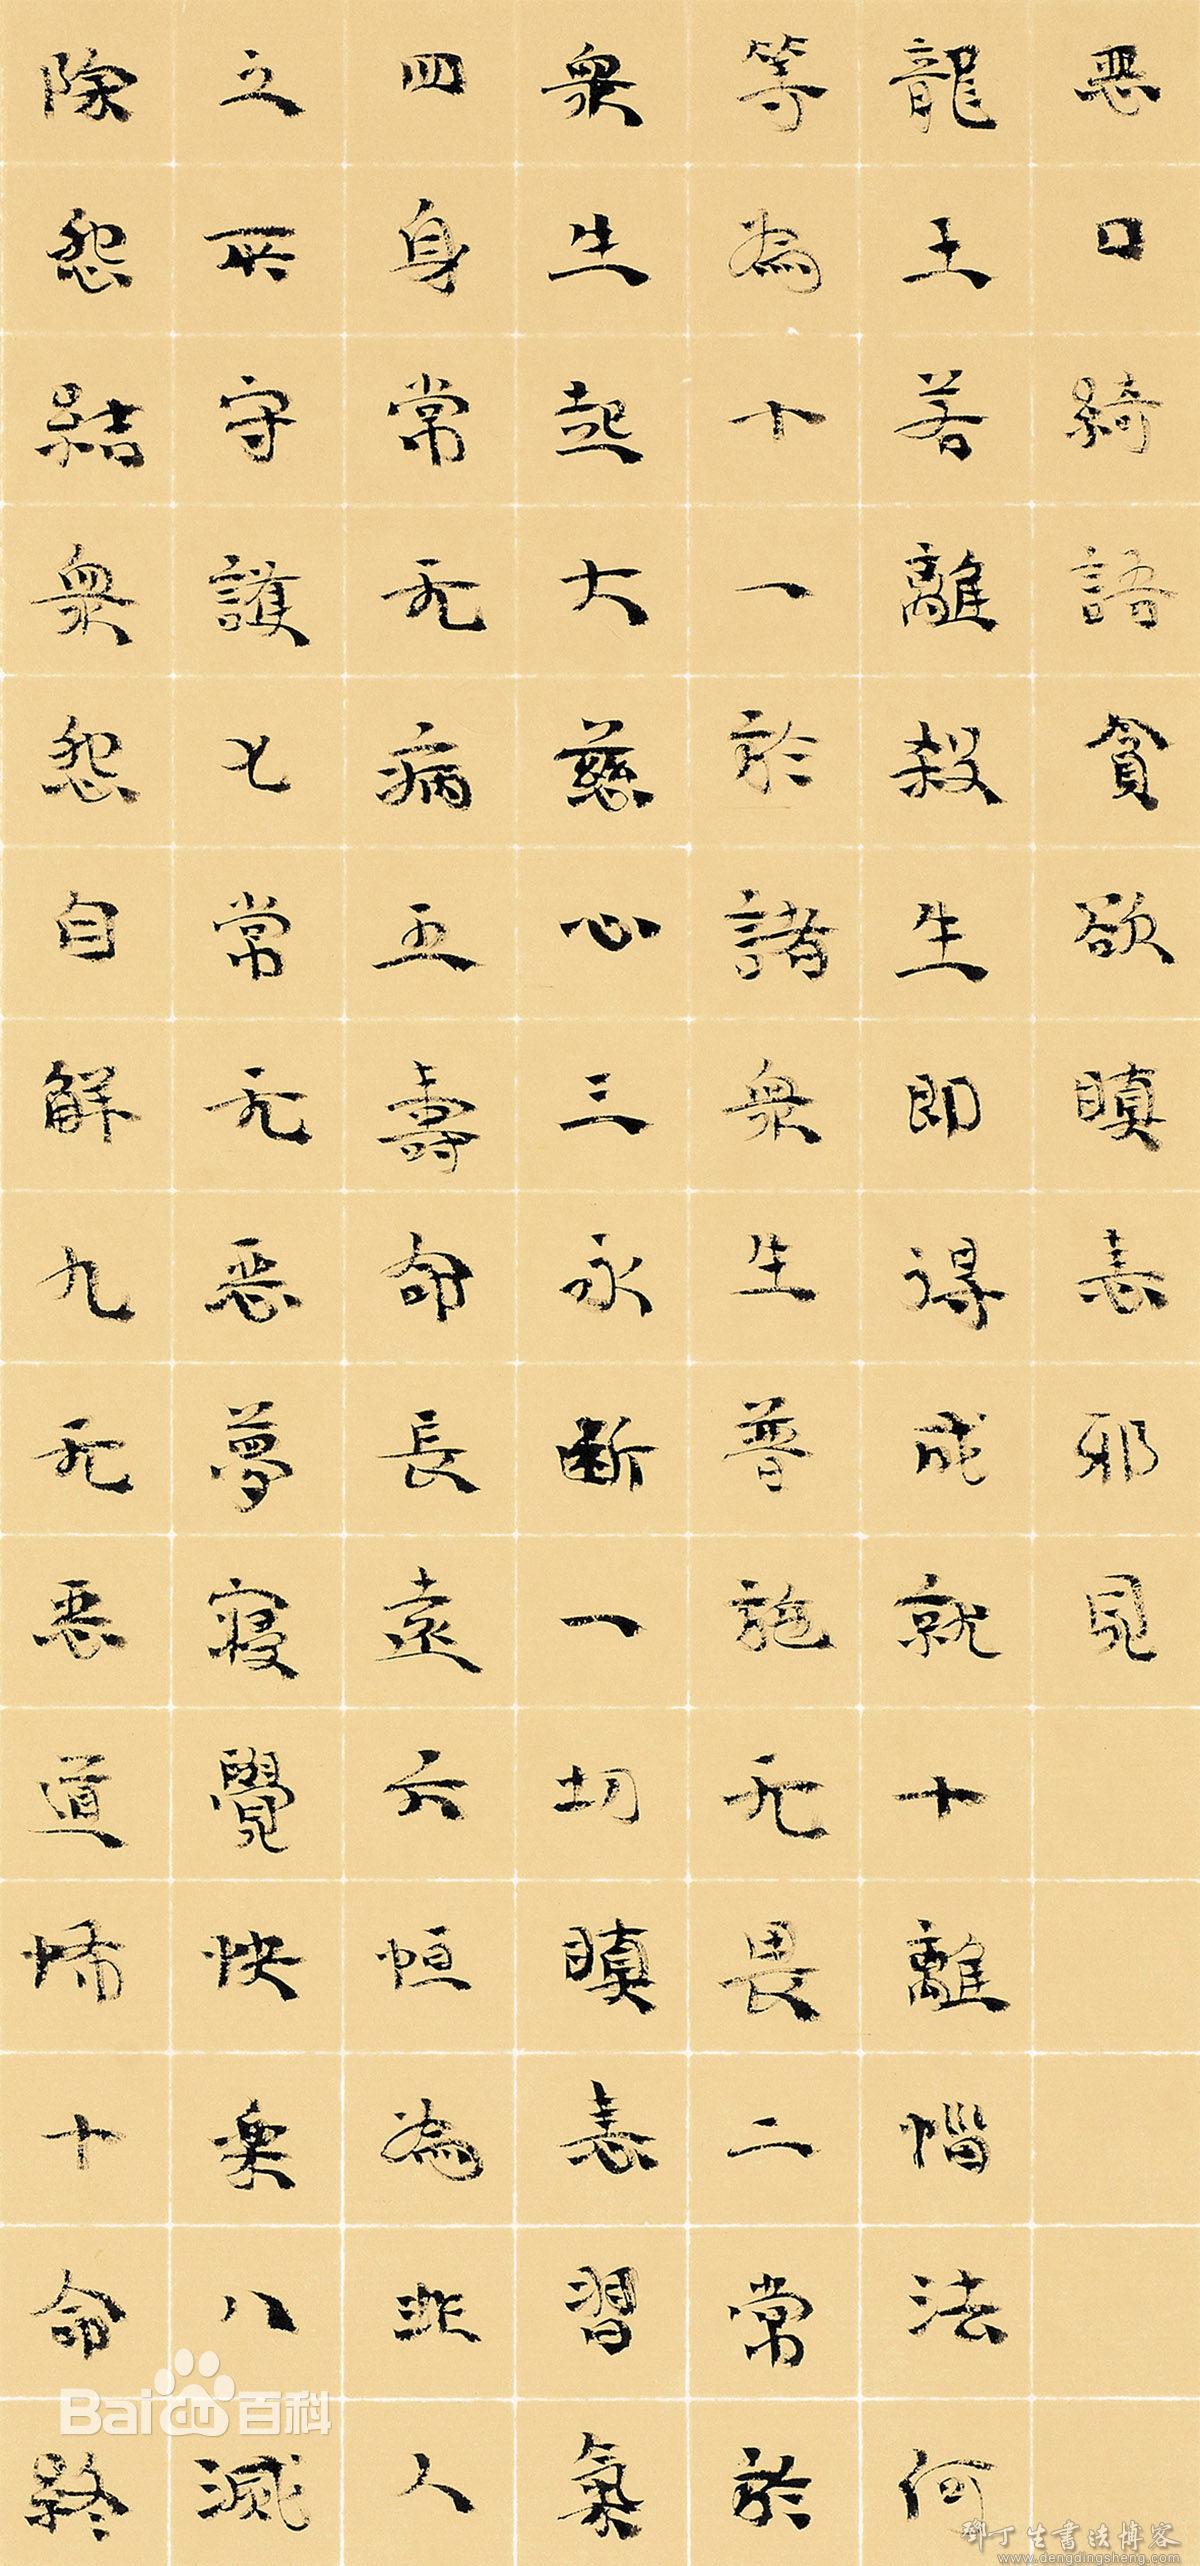 惡口綺語貪欲瞋恚邪見
龍王若離殺生即得成就十離惱法何
等為十一於諸眾生普施无畏二常於
眾生起大慈心三永斷一切瞋恚習氣
四身常无病五壽命長遠六恒為非人
之所守護七常无惡夢寢覺快樂八滅
除怨結眾怨自解九无惡道怖十命終
Baidu百科
鄧丁生書法博客
www.dengdingsheng.com